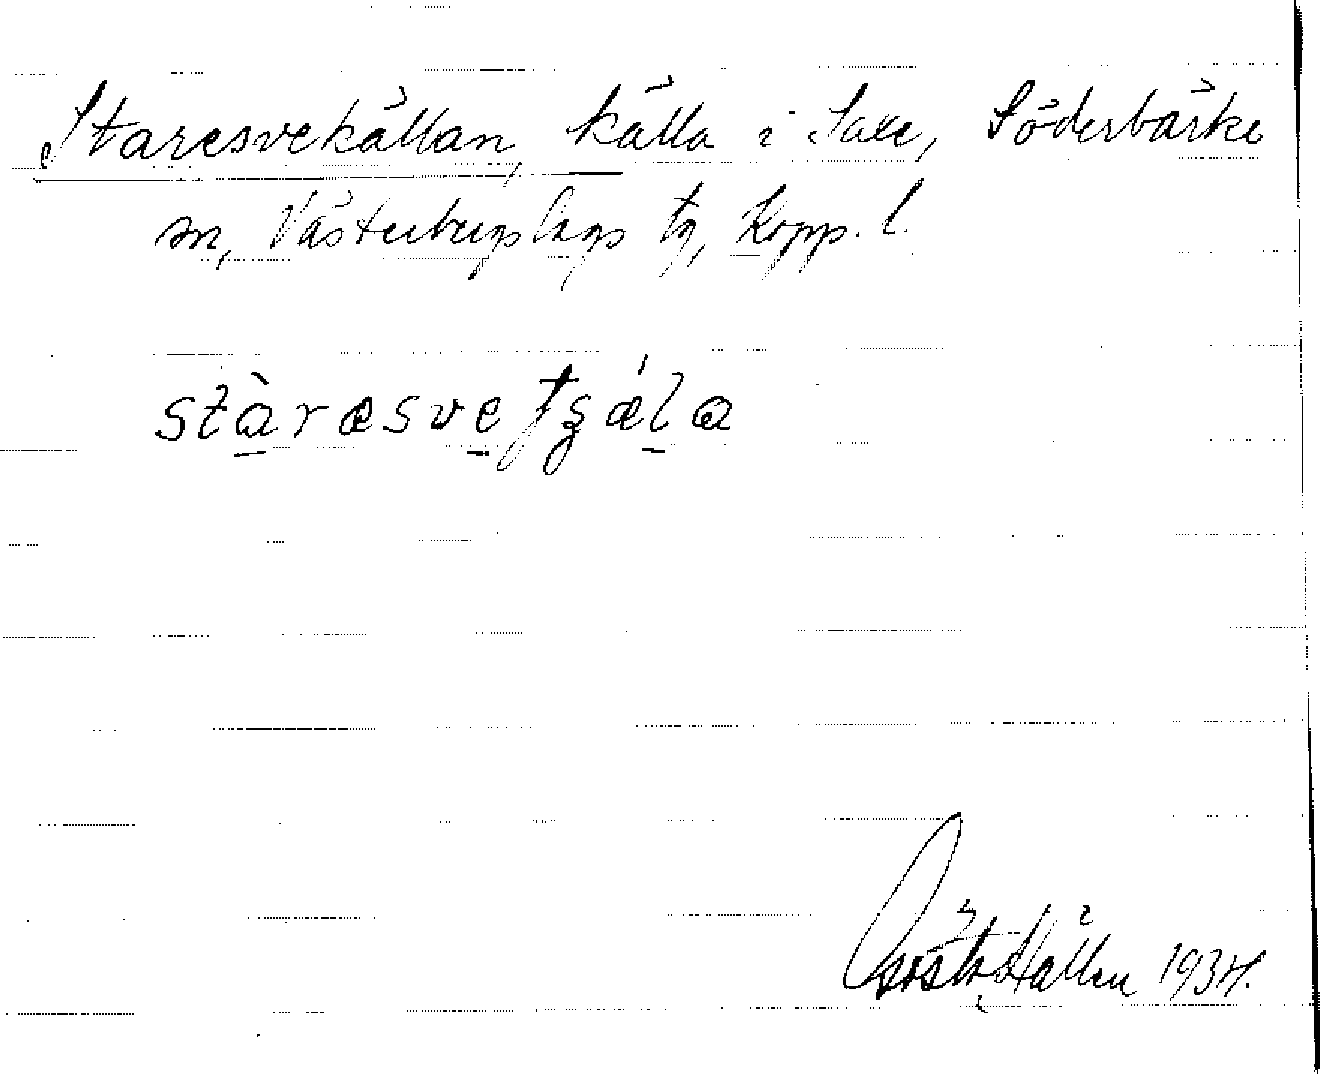 Staresvekällan, källa i Saxe, Söderbärke
sn, Västerbergslags tg, Kopp. l.
stàræsvetʂǽla
Gösta Hällen 1934.